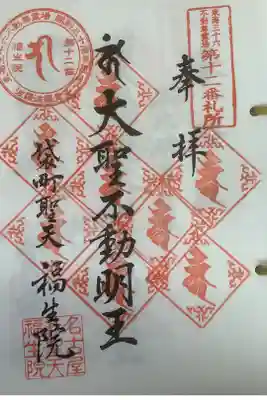 東海三十六
不動尊霊場
第十二番札所
奉拝
大聖不動明王
袋町聖天 福生院
第十二番
福生院
名古屋
大
福生院